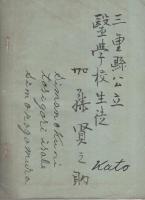 三重縣公立
醫學校生徒
加藤賢之助
Kato
Simanokuni
tosigori isobe
Simonogomura